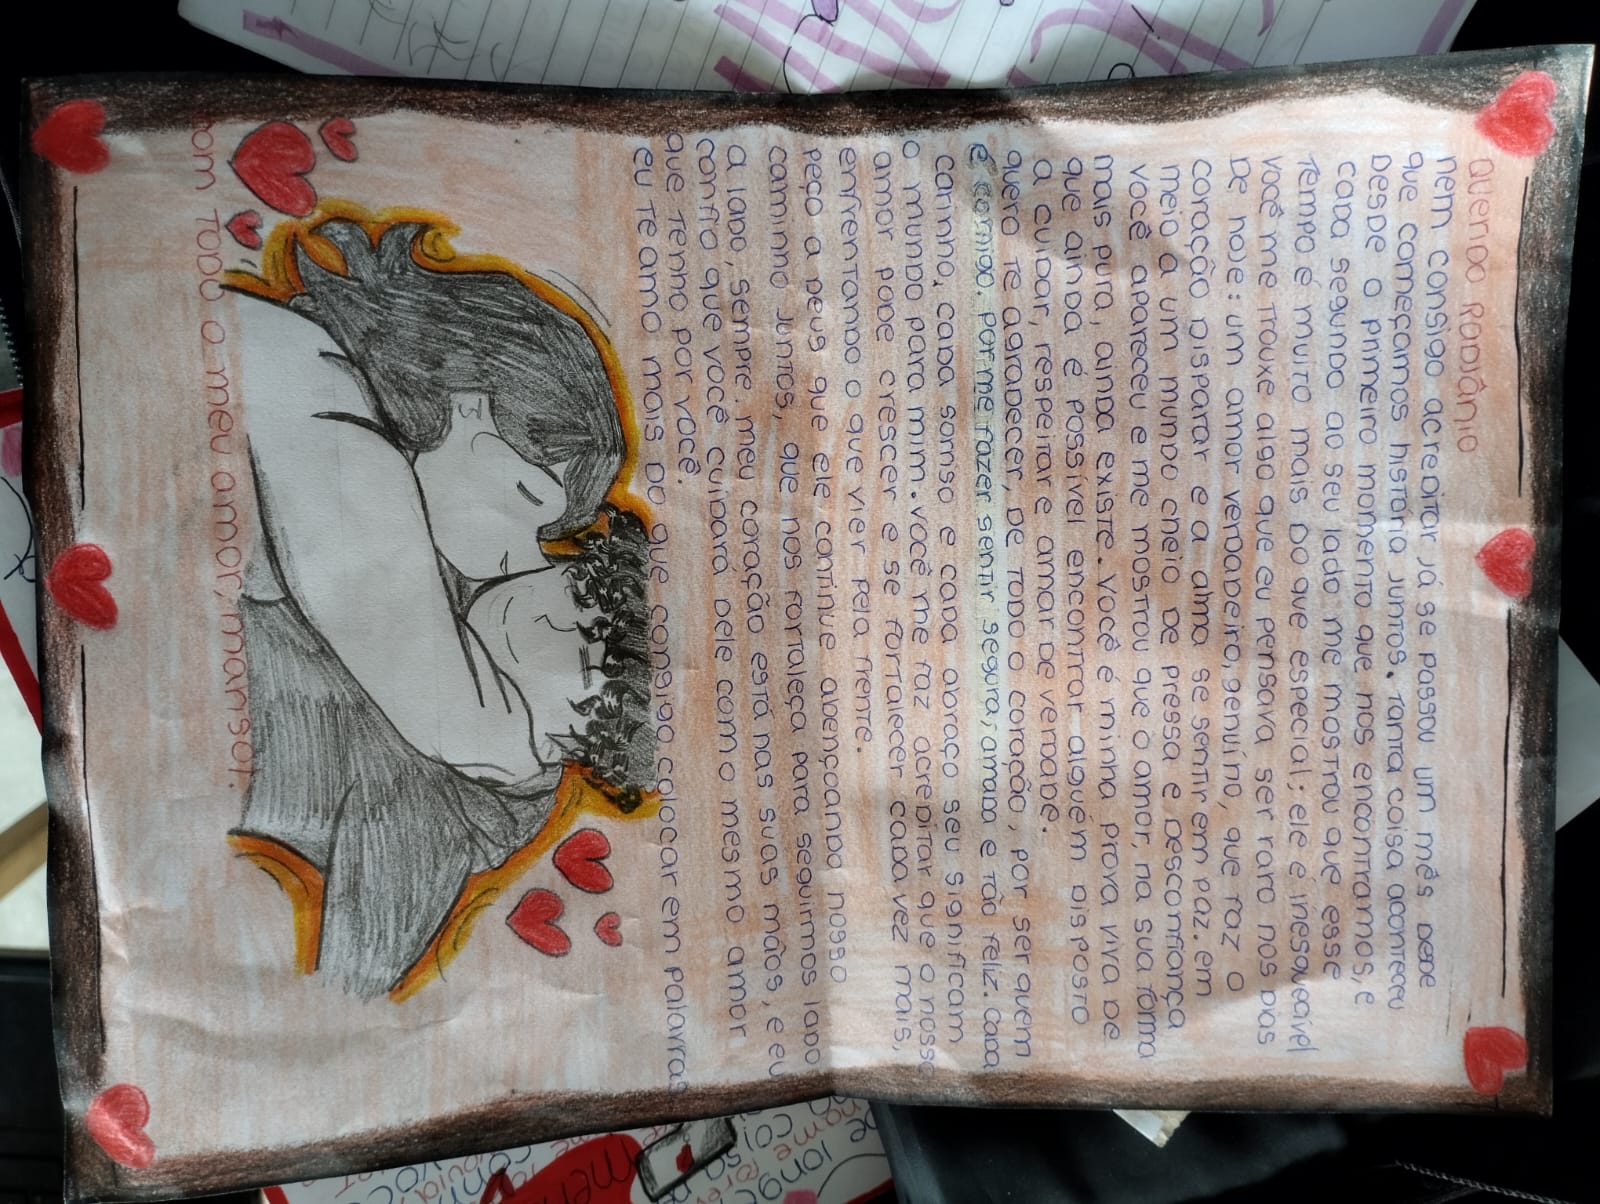 Querido Rodiânio
nem consigo acreditar já se passou um mês desde
que começamos história juntos. Tanta coisa aconteceu
desde o primeiro momento que nos encontramos, e
cada segundo ao seu lado me mostrou que esse
tempo é muito mais do que especial: ele é inesquecível
você me trouxe algo que eu pensava ser raro nos dias
de hoje: um amor verdadeiro, genuíno, que faz o
coração disparar e a alma se sentir em paz. em
meio a um mundo cheio de pressa e desconfiança
você apareceu e me mostrou que o amor, na sua forma
mais pura, ainda existe. você é minha prova viva de
que ainda é possível encontrar alguém disposto
a cuidar, respeitar e amar de verdade.
quero te agradecer, de todo o coração, por ser quem
é comigo. por me fazer sentir segura, amada e tão feliz. cada
carinho, cada sorriso e cada abraço seu significam
o mundo para mim. você me faz acreditar que o nosso
amor pode crescer e se fortalecer cada vez mais,
enfrentando o que vier pela frente.
peço a Deus que ele continue abençoando nosso
caminho juntos, que nos fortaleça para seguirmos lado
a lado, sempre. meu coração está nas suas mãos, e eu
confio que você cuidará dele com o mesmo amor
que tenho por você.
eu te amo mais do que consigo colocar em palavras
com todo o meu amor, mansa!